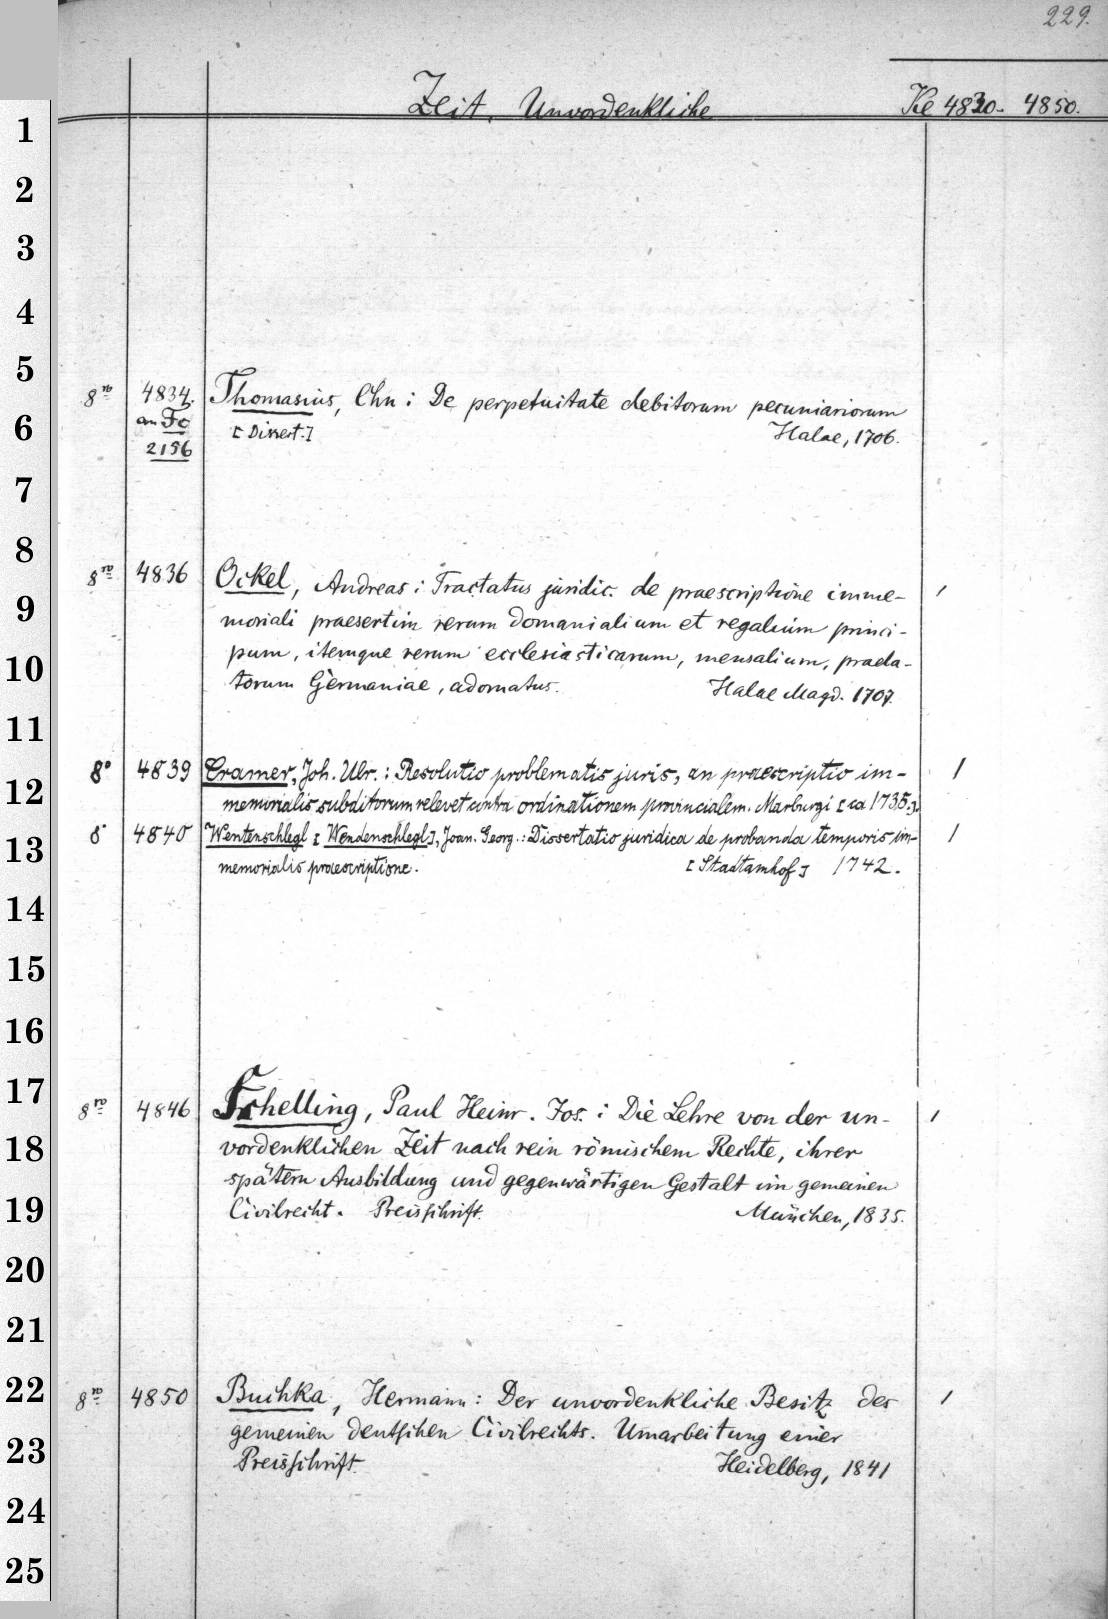 229.
Zeit, Unvordenkliche Ke 4830 - 4850.
1
2
3
4
5
6
7
8
9
10
11
12
13
14
15
16
17
18
19
20
21
22
23
24
25
8ᵛᵒ 4834. Thomasius, Chn : De perpetuitate debitorum pecuniariorum
an Fc [Dissert.] Halae, 1706.
2156
8ᵛᵒ 4836 Ockel, Andreas : Tractatus juridic. de praescriptione imme-
moriali praesertim rerum domanialium et regalium princi-
pum, itemque rerum ecclesiasticarum, mensalium, praela-
torum Germaniae, adornatus. Halae Magd. 1707.
8° 4839 Cramer, Joh. Ulr. : Resolutio problematis juris, an praescriptio im-
memorialis subditorum relevet contra ordinationem provincialem. Marburgi [ca 1735.]
8° 4840 Wentenschlegl [Wendenschlegl], Joan. Georg. : Dissertatio juridica de probanda temporis im-
memorialis praescriptione. [Stadtamhof] 1742.
8ᵛᵒ 4846 Schelling, Paul Heinr. Jos. : Die Lehre von der un-
vordenklichen Zeit nach rein römischem Rechte, ihrer
spätern Ausbildung und gegenwärtigen Gestalt im gemeinen
Civilrecht. Preisschrift. München, 1835.
8ᵛᵒ 4850 Buchka, Hermann : Der unvordenkliche Besitz des
gemeinen deutschen Civilrechts. Umarbeitung einer
Preisschrift. Heidelberg, 1841